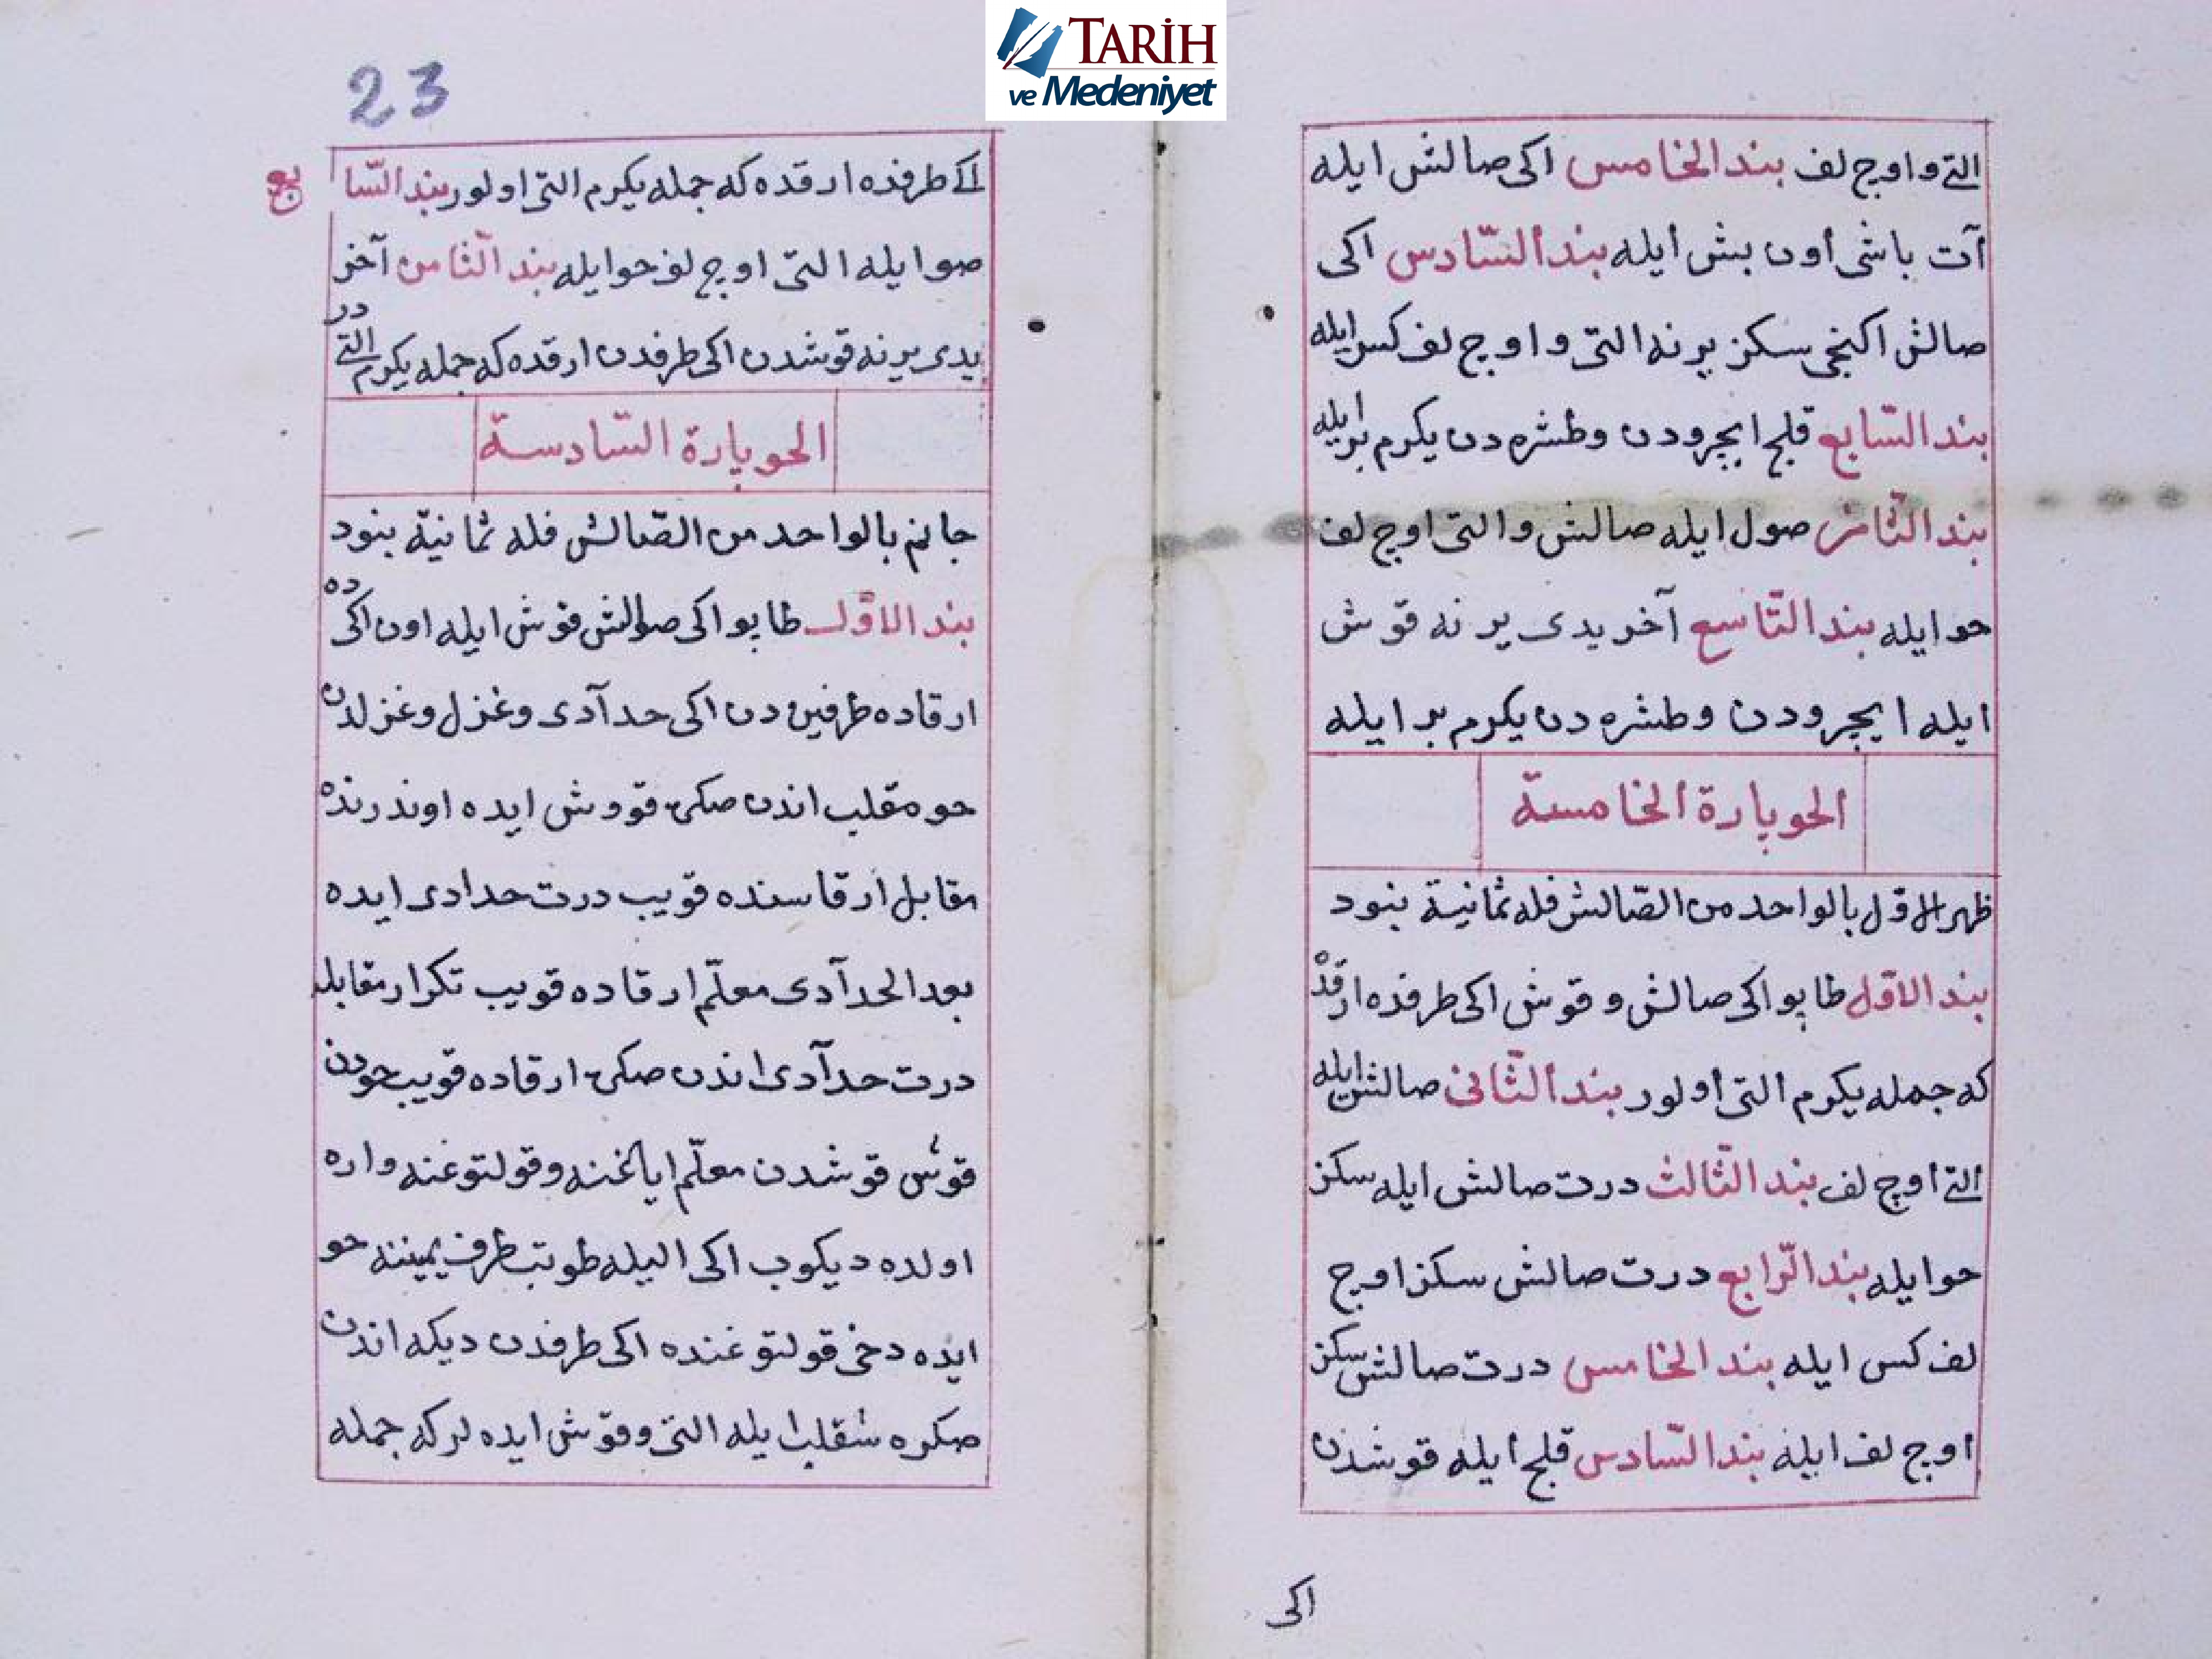 TARİH
ve Medeniyet
التی و اوج لف بند الخامس اکی صالش ایله
آت باشی اون بش ایله بند السّادس اکی
صالش اکنجی سکز یرنه التی و اوج لف کس ایله
بند السّابع قلج ایچرودن وطشره دن یکرم بر ایله
بند الثّامن صول ایله صالش و التی اوج لف
حو ایله بند التّاسع آخر یدی یرنه قوّش
ایله ایچرودن وطشره دن یکرم بر ایله
الحوبارة الخامسة
ظهر الاوّل بالواحد من الصّالش فله ثمانیة بنود
بند الاوّل طاپو اکی صالش و قوّش اکی طرفده ارقده
که جمله یکرم التی اولور بند الثّانی صالش ایله
التی اوج لف بند الثّالث درت صالش ایله سکز
حو ایله بند الرّابع درت صالش سکز اوج
لف کس ایله بند الخامس درت صالش سکز
اوج لف ایله بند السّادس قلج ایله قوشدن
اکی
23
اکی طرفده ارقده که جمله یکرم التی اولور بند السّابع
صو ایله التی اوج لف حو ایله بند الثّامن آخر
یدی یرنه قوشدن اکی طرفدن ارقده که جمله یکرم التی در
الحوبارة السّادسة
جانم بالواحد من الصّالش فله ثمانیة بنود
بند الاوّل طاپو اکی صوالش قوش ایله اون اکی ده
ارقاده طرفین دن اکی حد آدی وغزل وغزلدن
حو مقلب اندن صکره قووش ایده اوندرنده
مقابل ارقاسنده قویب درت حدادی ایده
بعد الحد آدی معلّم ارقاده قویب تکرار مقابله
درت حد آدی اندن صکره ارقاده قویب حودن
قوش قوشدن معلّم ایاغنه و قولتوغنه واره
اولده دیکوب اکی الیله طوتب طرف یمیننه حو
ایده دخی قولتوغنده اکی طرفدن دیکه اندن
صکره شقلب ایله التی و قوّش ایده لر که جمله